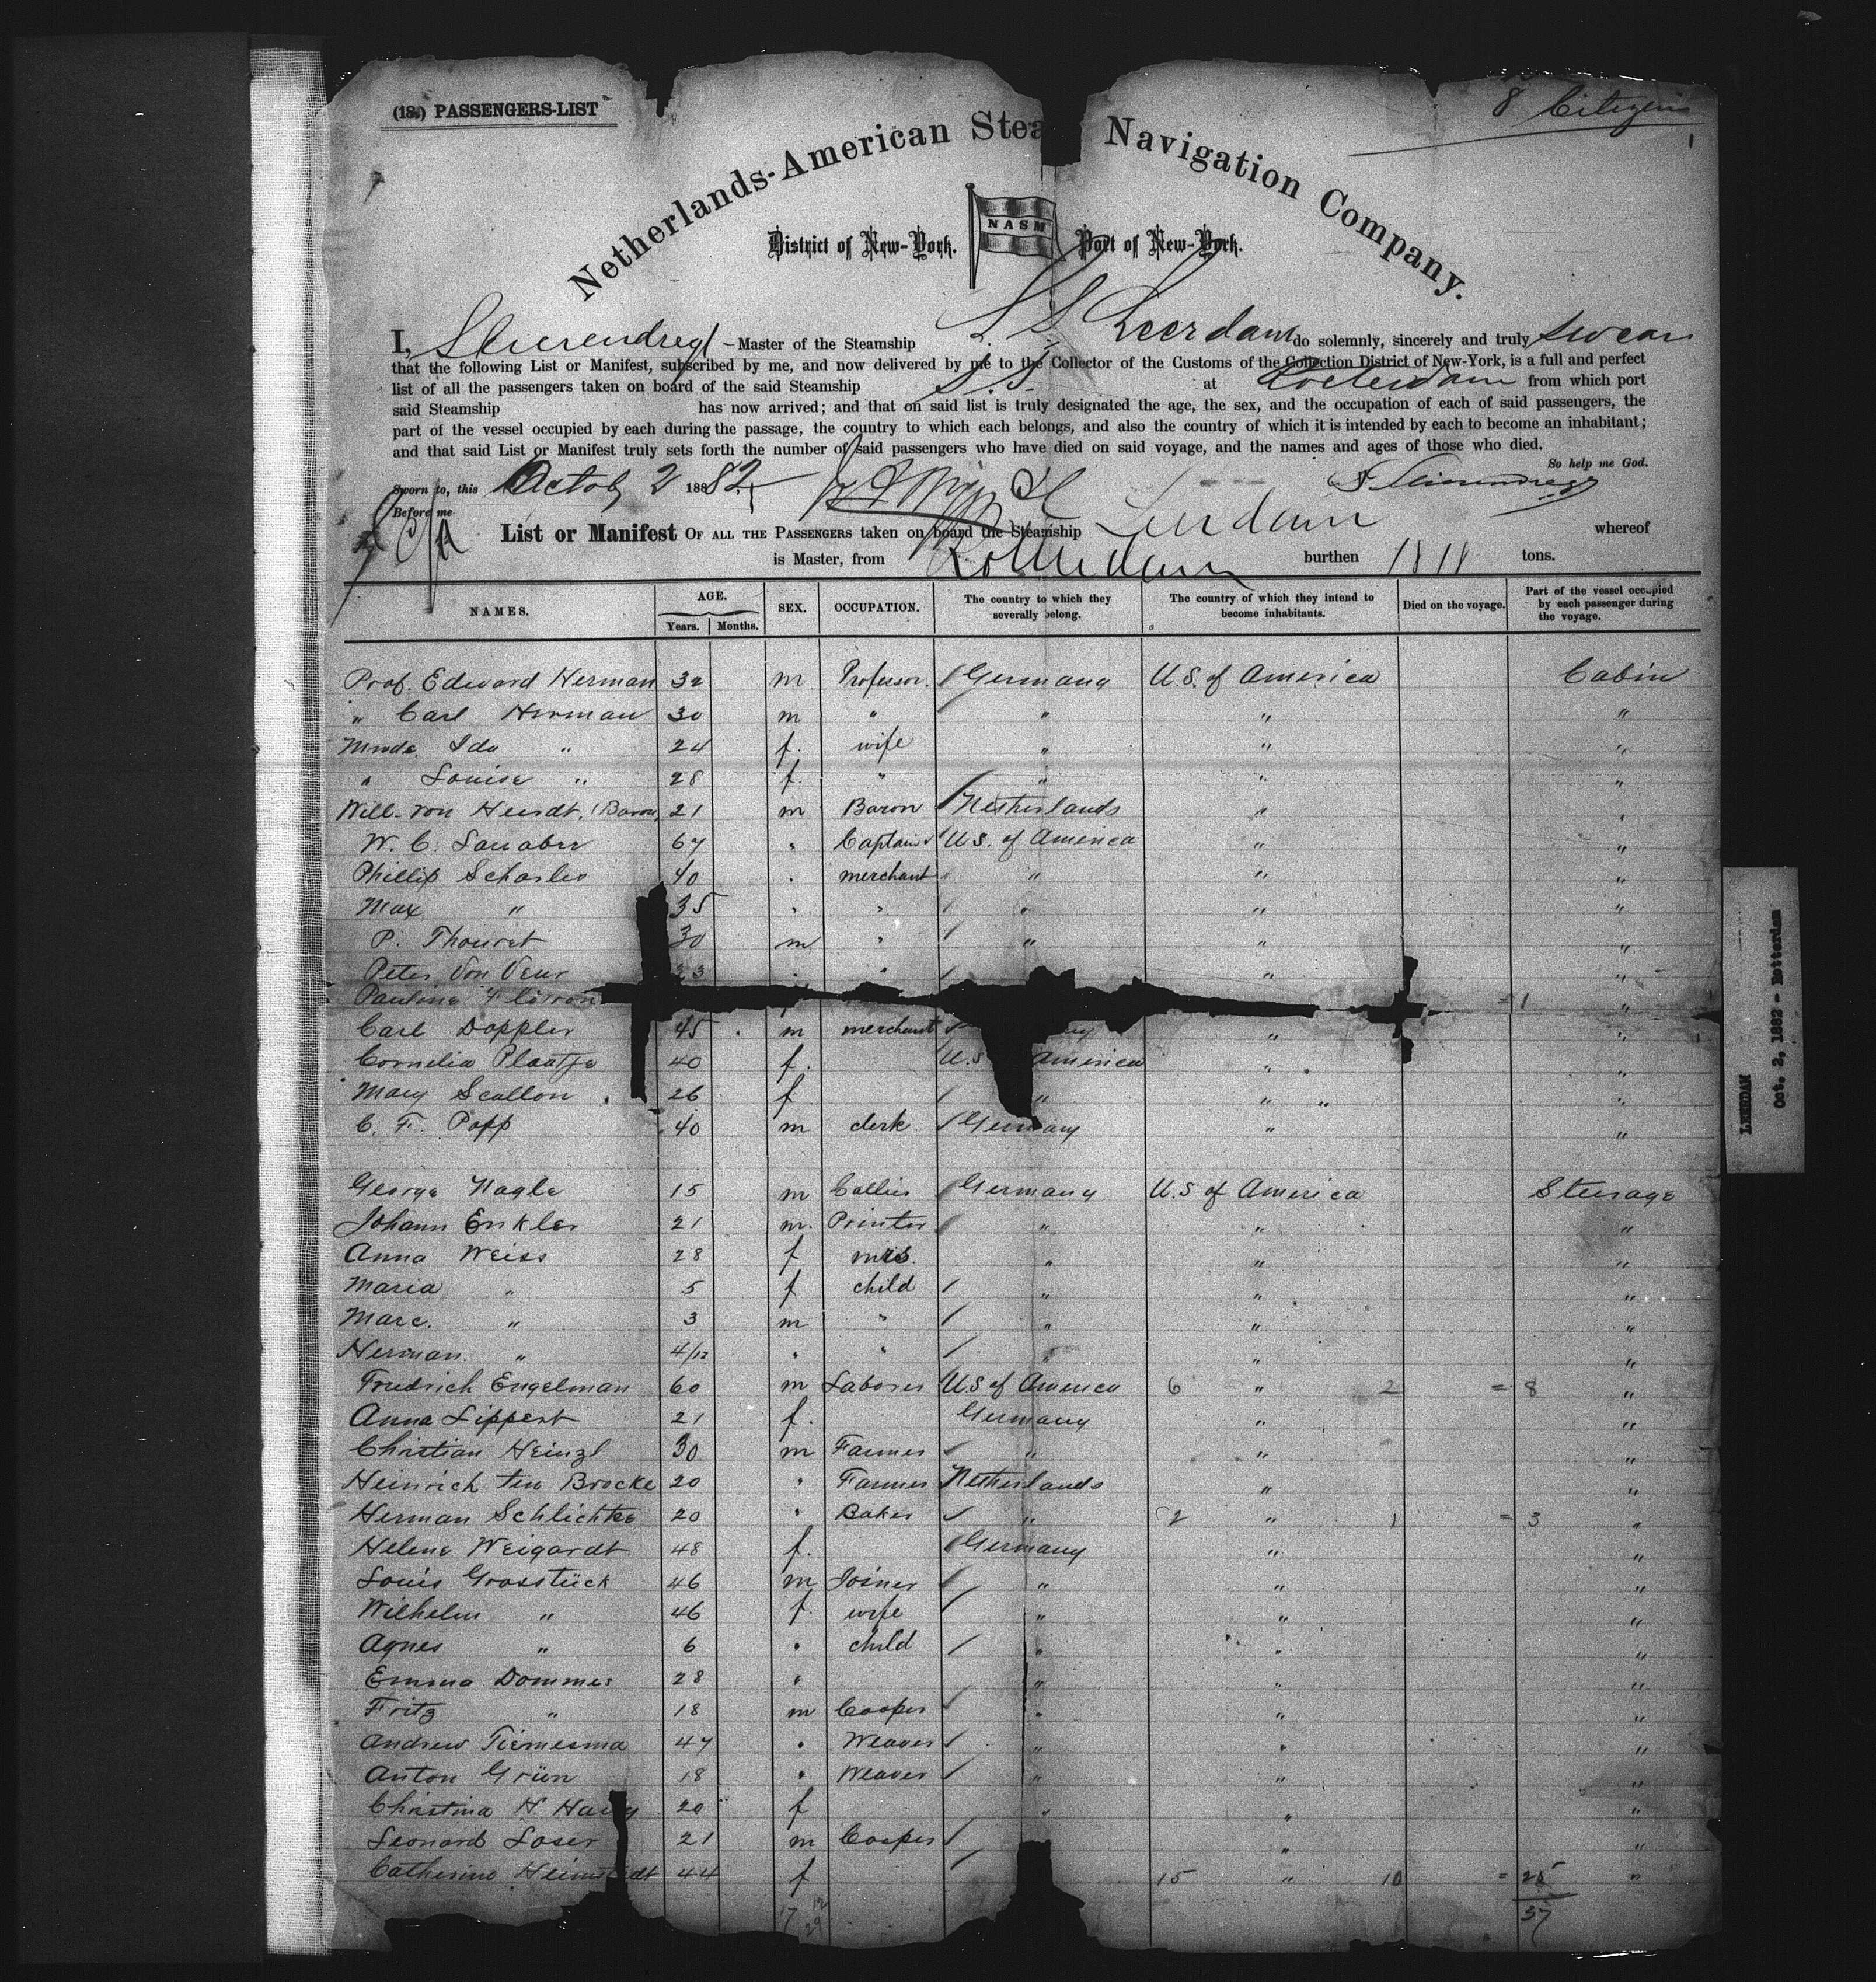 (18.) PASSENGERS-LIST
8 Citizens
1
Netherlands-American Stea Navigation Company.
NASM
District of New-York. Port of New-York.
I, Master of the Steamship S.S. Leerdam do solemnly, sincerely and truly swear
that the following List or Manifest, subscribed by me, and now delivered by me to the Collector of the Customs of the Collection District of New-York, is a full and perfect
list of all the passengers taken on board of the said Steamship S.S. at Rotterdam from which port
said Steamship has now arrived; and that on said list is truly designated the age, the sex, and the occupation of each of said passengers, the
part of the vessel occupied by each during the passage, the country to which each belongs, and also the country of which it is intended by each to become an inhabitant;
and that said List or Manifest truly sets forth the number of said passengers who have died on said voyage, and the names and ages of those who died.
So help me God.
Sworn to, this Octob 2 1882
Before me
List or Manifest OF ALL THE PASSENGERS taken on board the Steamship Leerdam whereof
is Master, from Rotterdam burthen tons.
NAMES. AGE. Years. Months. SEX. OCCUPATION. The country to which they severally belong. The country of which they intend to become inhabitants. Died on the voyage. Part of the vessel occupied by each passenger during the voyage.
Prof. Edward Herman 32 m Professor. Germany U.S. of America Cabin
" Carl Herman 30 m " " " "
Ida " 24 f. wife " " "
" Louise " 28 f. " " " "
Will. von Heerdt, (Baron) 21 m Baron Netherlands " "
W. C. 67 " Captain U.S. of America " "
Phillip 40 " merchant " " "
Max " 35 " " " " "
P. Thouret 30 m " " " "
Peter Von Veur 23 " " " "
Pauline = 1 "
Carl Doppler 45 m merchant " "
Cornelia Plaatje 40 f. U.S. America " "
Mary Scallon 26 f " " "
C. F. Popp 40 m clerk. Germany " "
George Nagle 15 m Germany U.S of America Steerage
Johann Enkler 21 m. Printer " " "
Anna Weiss 28 f mrs. " " "
Maria " 5 f child " " "
Marc. " 3 m " " " "
Herman " 4/12 " " " " "
Friedrich Engelman 60 m Laborer U.S of America 6 " 2 = 8 "
Anna Lippert 21 f. Germany " "
Christian Heinzl 30 m Farmer " " "
Heinrich ten Brocke 20 " Farmer Netherlands " "
Herman Schlichtke 20 " Baker " 2 " 1 = 3 "
Helene Weigardt 48 f. Germany " "
Louis Grosstück 46 m Joiner " " "
Wilhelm " 46 f. wife " " "
Agnes " 6 " child " " "
Emma Dommer 28 " " " "
Fritz " 18 m Cooper " " "
Andrew Tiemesma 47 " Weaver " " "
Anton Grün 18 " Weaver " " "
Christina H 20 f " " "
Leonard Loser 21 m Cooper " "
Catherine 44 f 15 " 10 = 25 "
17 12
29
37
LEERDAM
Oct. 2, 1882 - Rotterdam